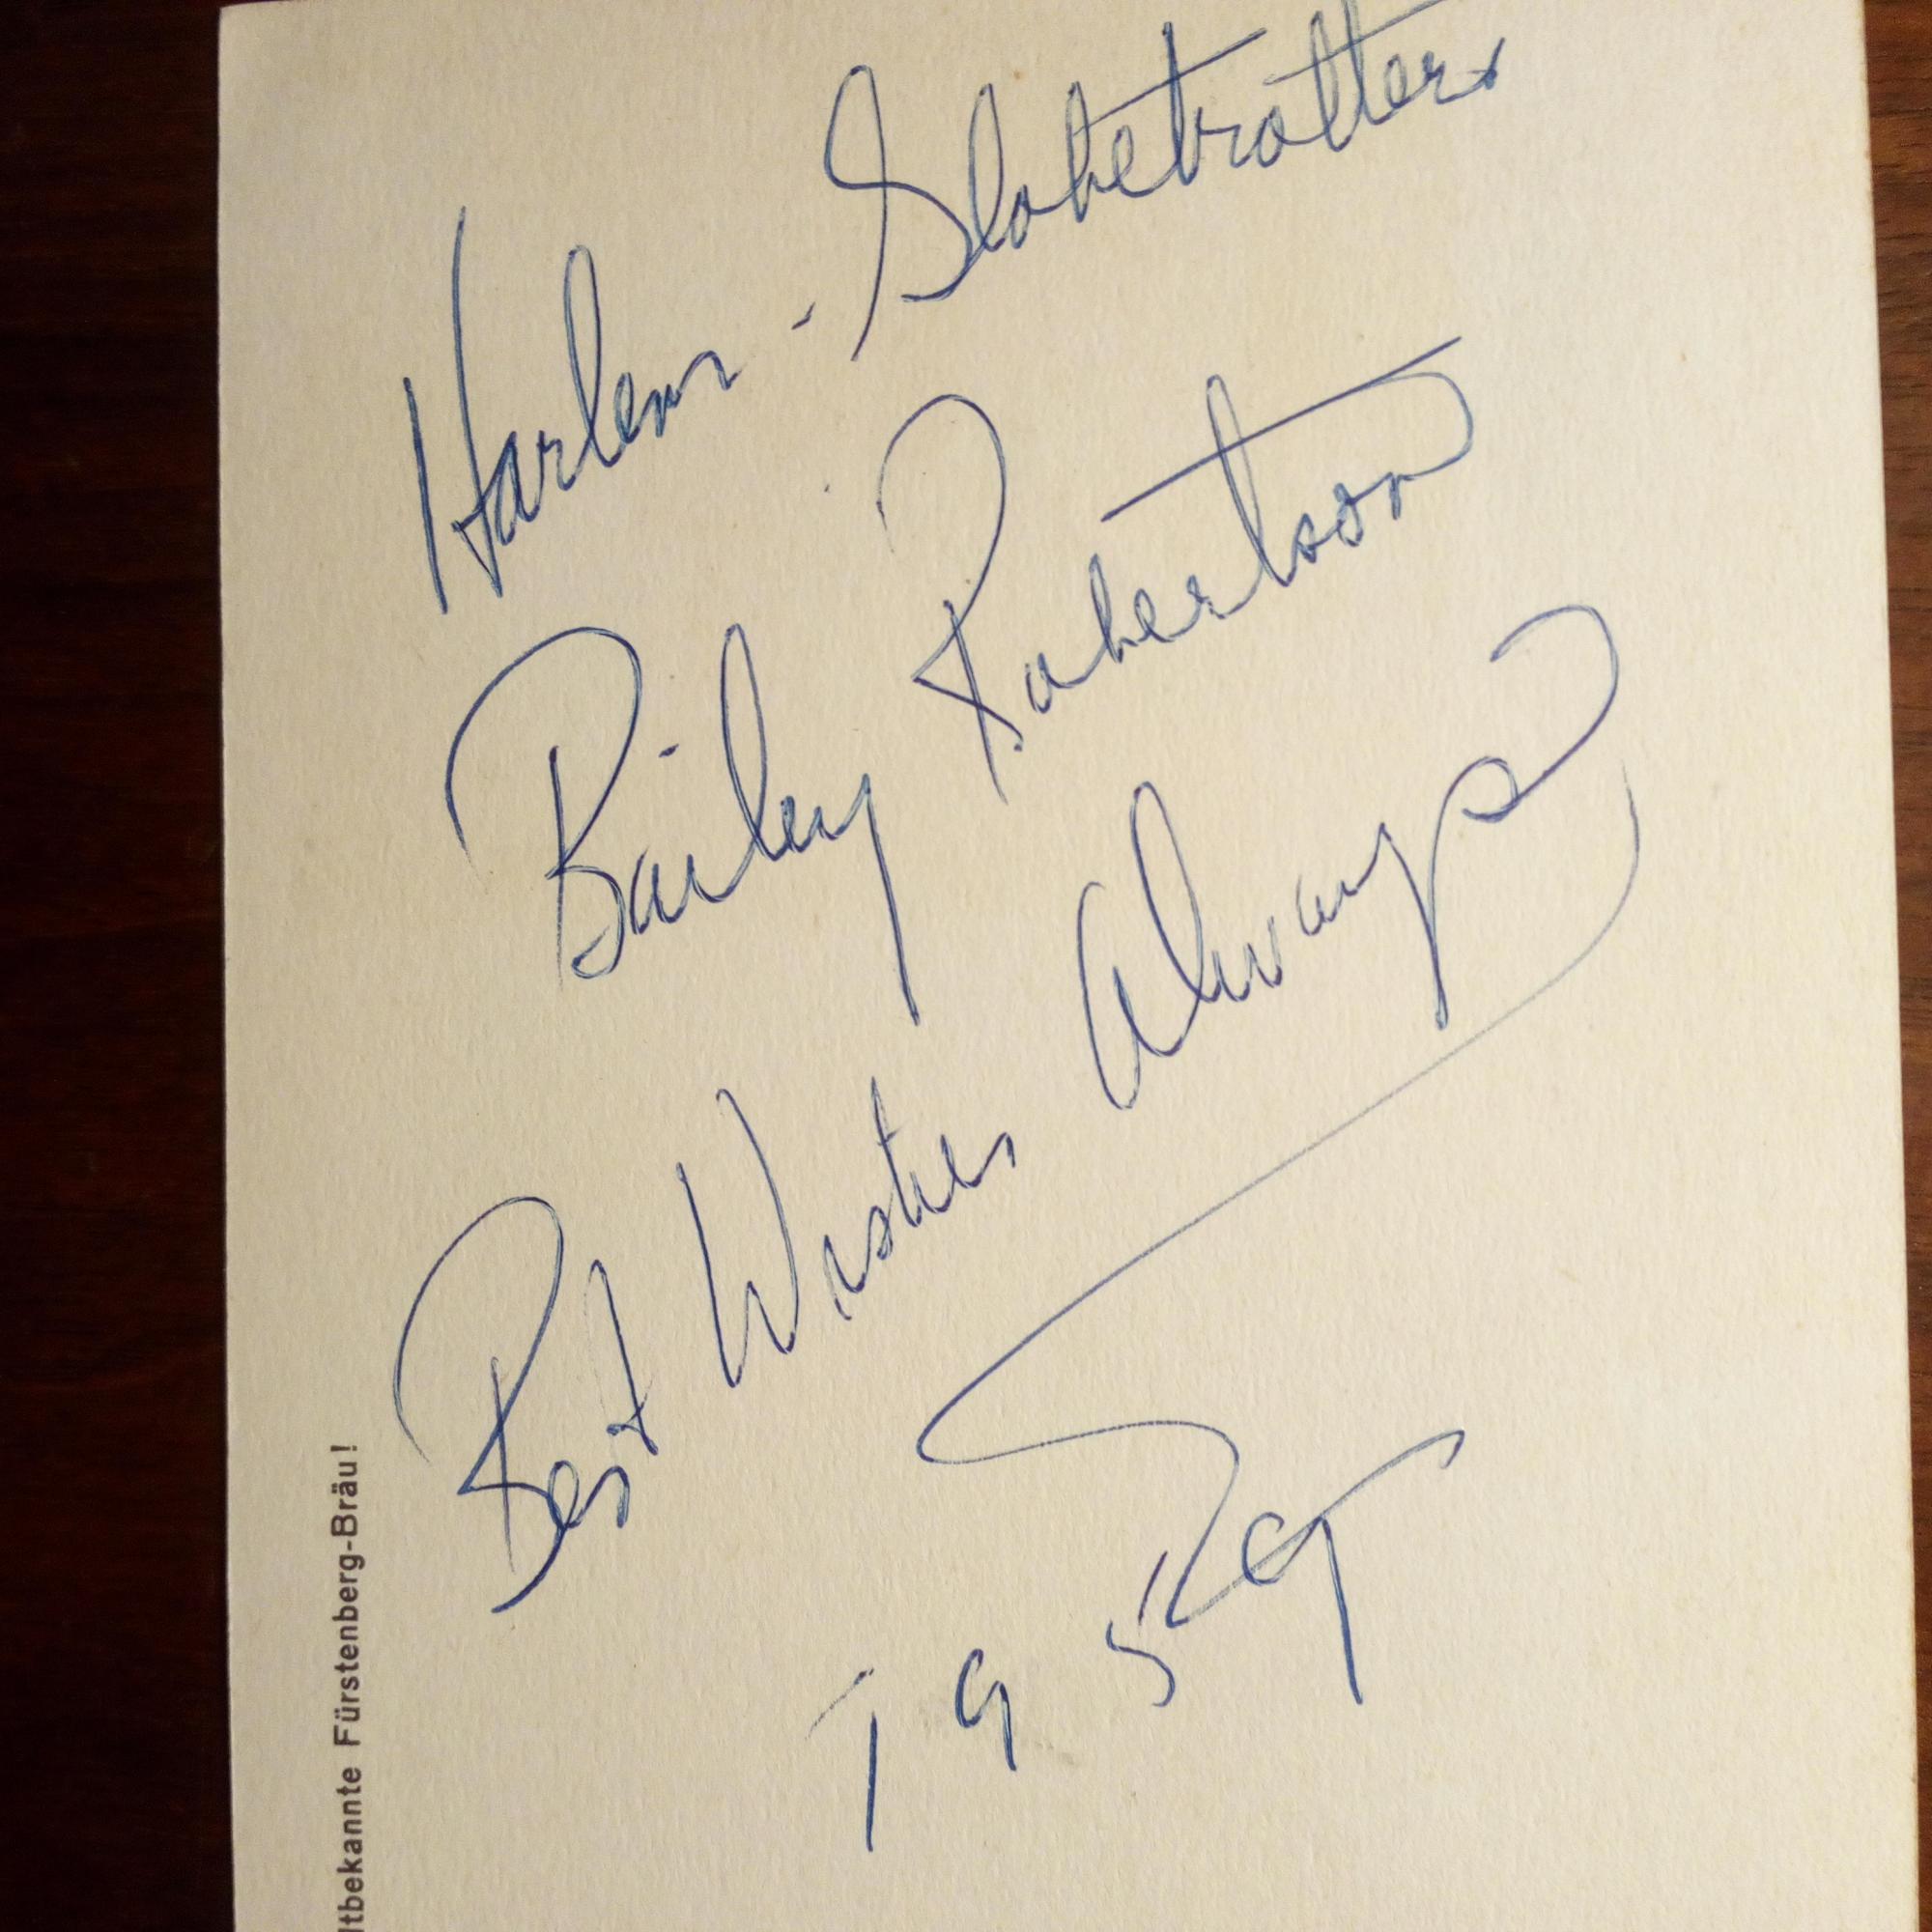 Harlem - Globetrotters
Bailey Robertson
Best Wishes Always
1959
ltbekannte Fürstenberg-Bräu!